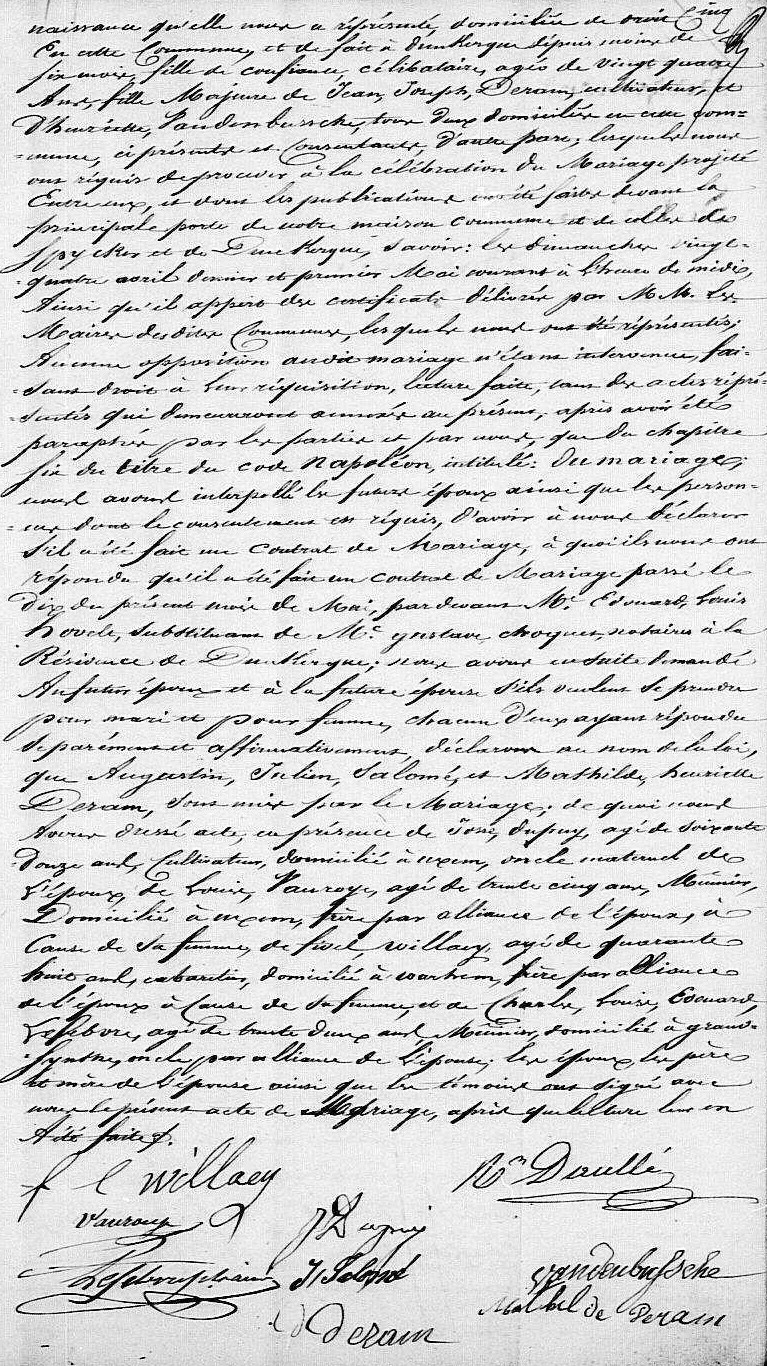 naissance qu'elle nous a représenté, domiciliée de droit Cinq
En cette Commune, et de fait à Dunkerque depuis moins de
six mois, fille de confiance, célibataire, agée de vingt quatre
Ans, fille Majeure de Jean, Joseph, Deram, cultivateur, et
D'henriette, Vandenbussche, tous deux domiciliés en cette com=
=mune, ci présents et Consentants, D'autre part; lesquels nous
ont requis de procéder à la célébration du Mariage projeté
Entre eux, et dont les publications ont été faites devant la
principale porte de notre maison commune et de celles de
Spycker et de Dunkerque, savoir: les dimanches vingt=
=quatre avril dernier et premier Mai courant à l'heure de midi,
Ainsi qu'il appert des certificats délivrés par MM. les
Maires desdites Communes, lesquels nous ont été représentés;
Aucune opposition audit mariage n'étant intervenue, fai=
=sant droit à leur réquisition, lecture faite, tant des actes repré=
=sentés qui demeureront annexés au présent, après avoir été
paraphés par les parties et par nous, que du chapitre
six du titre du code Napoléon, intitulé: du mariage;
nous avons interpellé les futurs époux ainsi que les person=
=nes dont le consentement est requis, d'avoir à nous déclarer
s'il a été fait un contrat de Mariage, à quoi ils nous ont
répondu qu'il a été fait un contrat de Mariage passé le
dix du présent mois de Mai, pardevant Me. Edouard, Louis
hovelt, substituant de Me. gustave, choquet, notaires à la
Résidence de Dunkerque; nous avons ensuite demandé
Au futur époux et à la future épouse s'ils veulent se prendre
pour mari et pour femme, chacun d'eux ayant répondu
séparément et affirmativement, déclarons au nom de la loi,
que Augustin, Julien, Salomé, et Mathilde, henriette
Deram, sont unis par le Mariage; de quoi nous
Avons dressé acte, en présence de José, dupuy, agé de soixante
douze ans, Cultivateur, domicilié à uxem, oncle maternel de
L'époux, de Louis, Vauroye, agé de trente cinq ans, Meunier,
Domicilié à uxem, frère par alliance de l'époux, à
Cause de sa femme, de fidel, willaey, agé de quarante
huit ans, cabaretier, domicilié à warhem, frère par alliance
de l'époux à Cause de sa femme, et de Charles, Louis, Edouard,
Lefebvre, agé de trente deux ans, Meunier, domicilié à grand=
=Synthe, oncle par alliance de L'épouse; les époux, les père
et mère de l'épouse ainsi que les témoins ont signé avec
nous le présent acte de Mariage, après que lecture leur en
A été faite.
f C Willaey
Dr. Daullé
Vauroye
J Dupuy
Lefebvre
J Salomé
Vandenbussche
Deram
Mathilde Deram